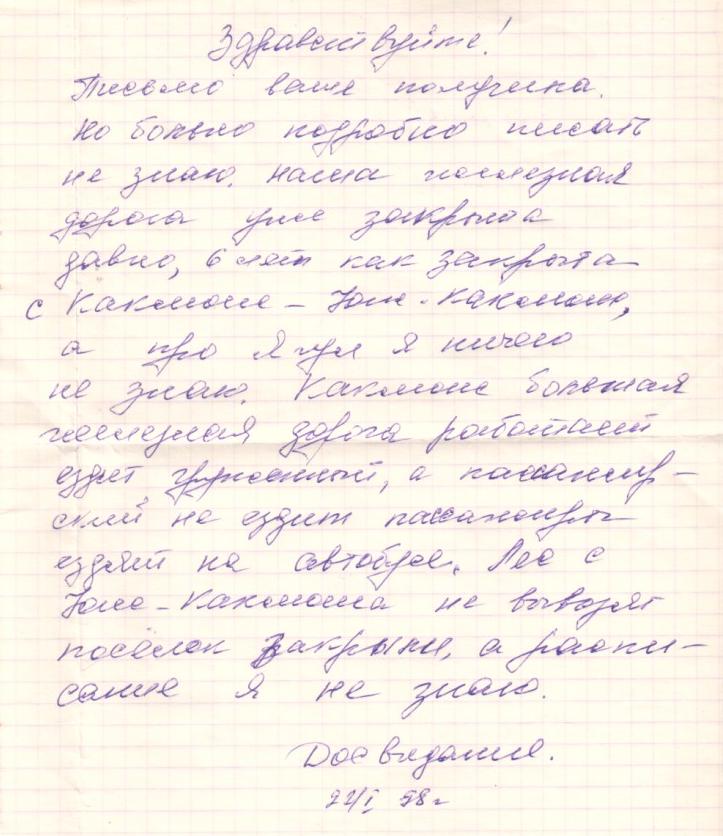 Здравствуйте!
Письмо ваше получила.
Но больно подробно писать
не знаю. наша железная
дорога уже закрыта
давно, 6 лет как закрыта
с Какможе – Юж-Какможа,
а про Ягул я ничего
не знаю. Какможе большая
железная дорога работает
ездит грузовый, а пассажир-
ский не ездит пассажиры
ездят на автобусе. Лес с
Юж-Какможа не вывозят
посёлок закрыли, а распи-
сание я не знаю.
Дос видание.
22/I 98 г